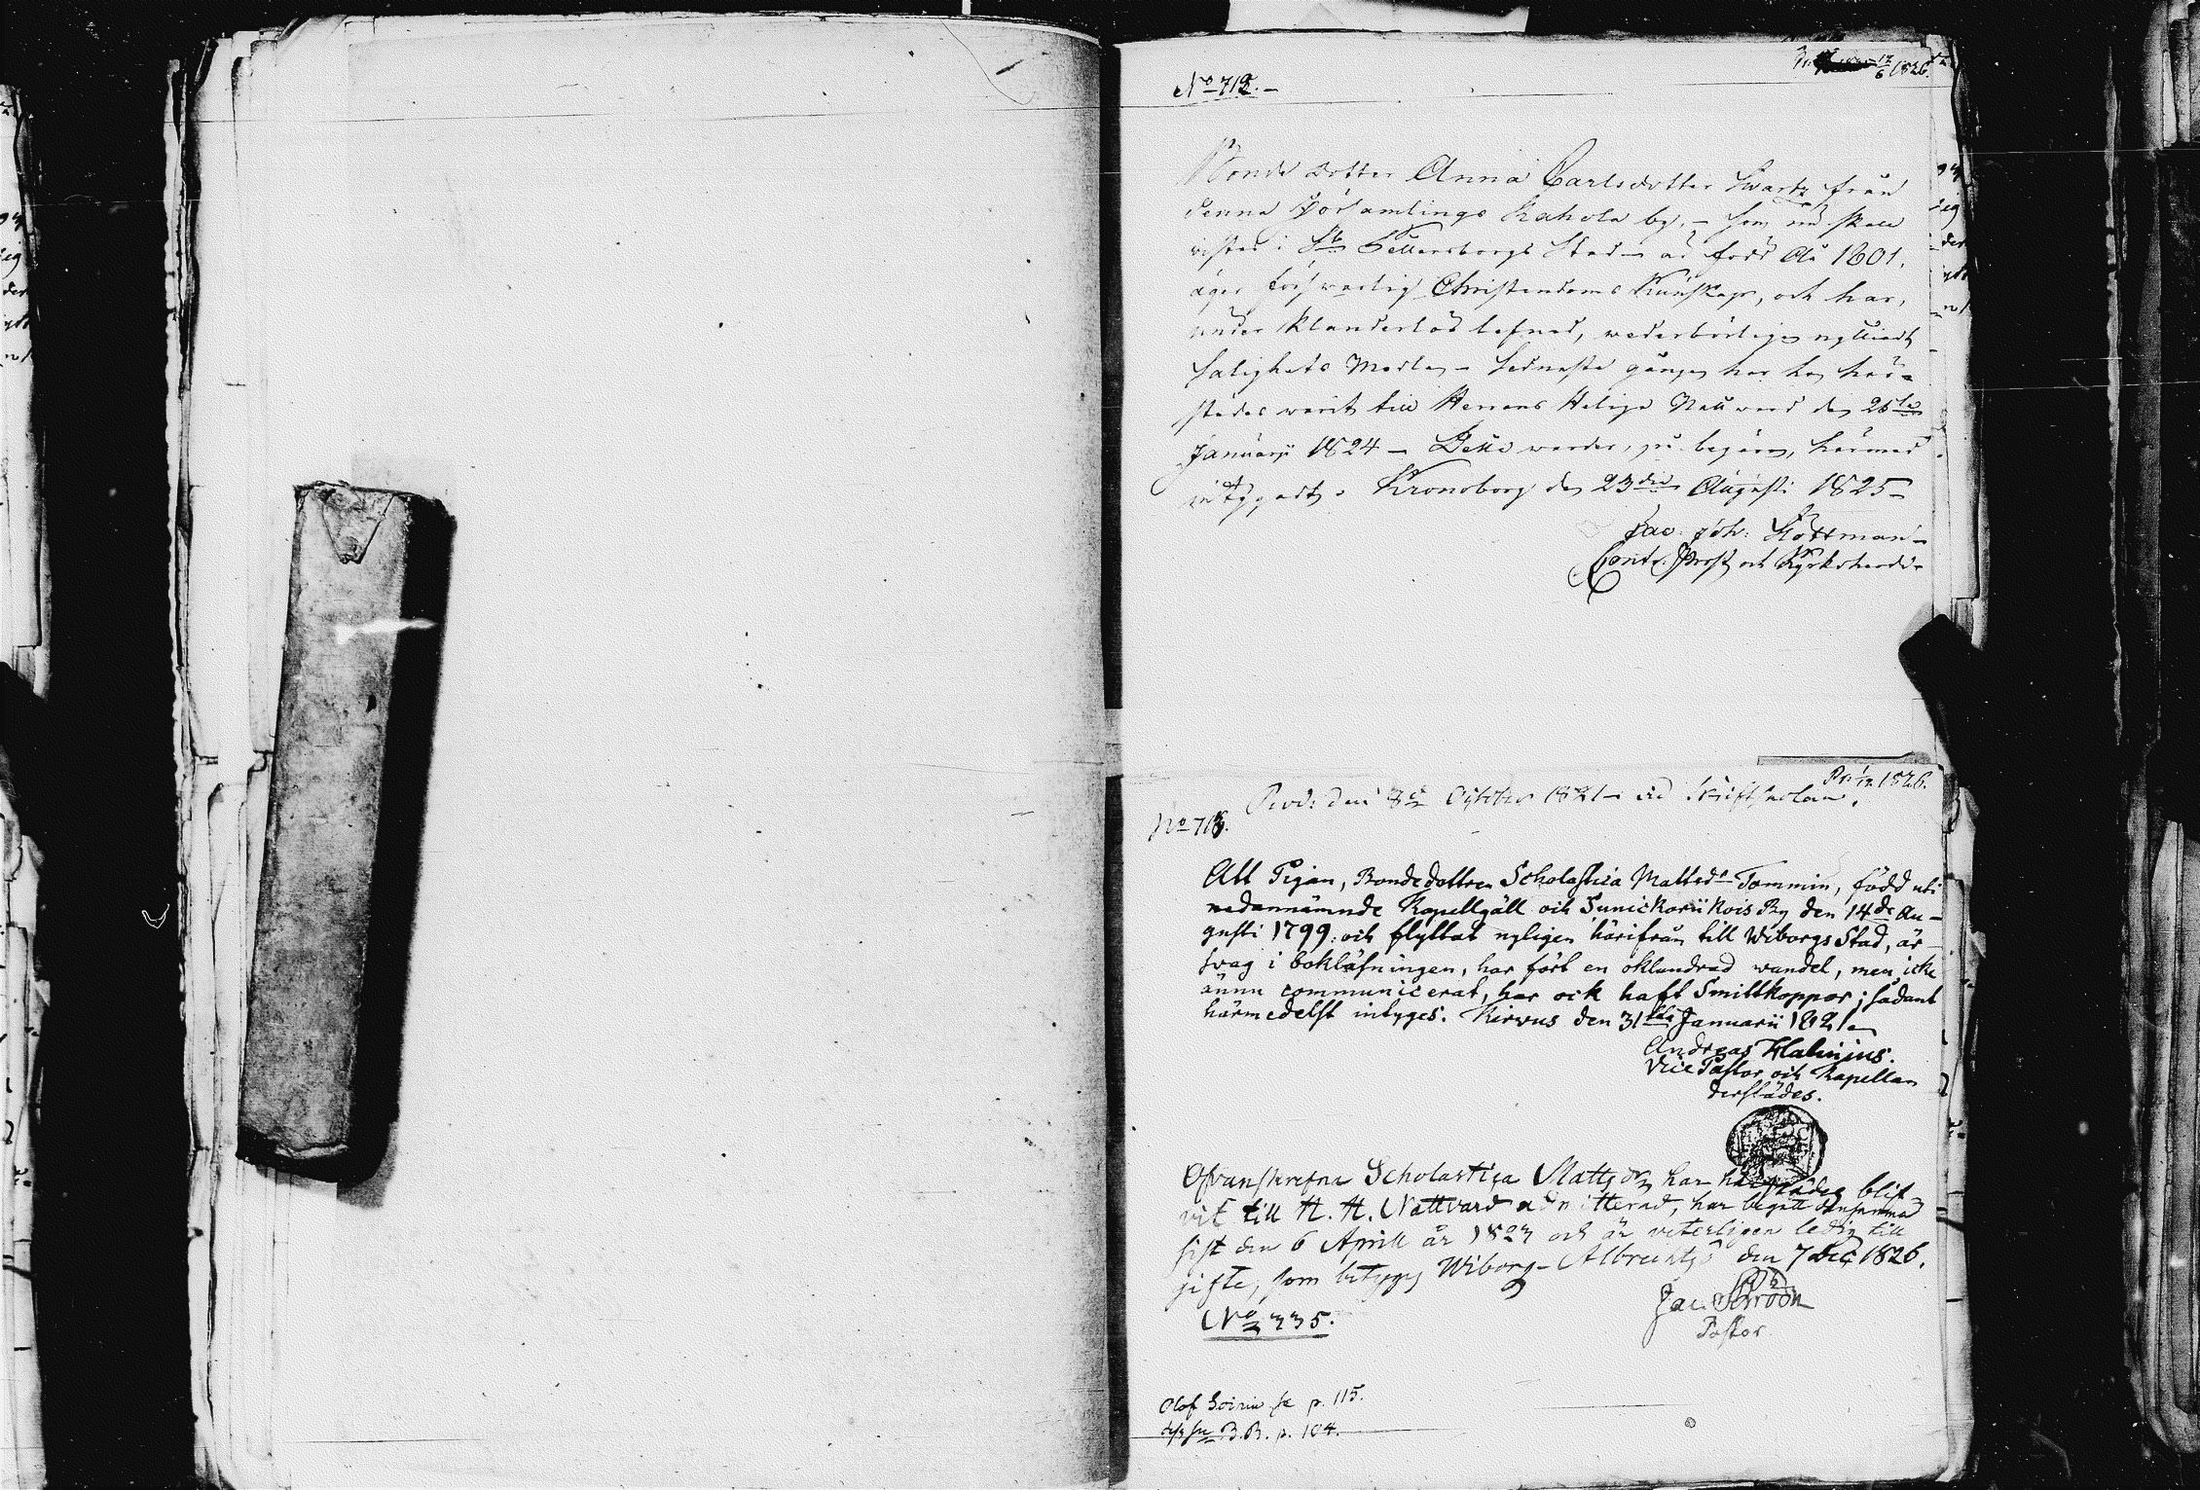 No 712.
12/6 1826.
Bonde dotter Anna Carlsdotter Swartz från
denna Församlings Rahola by, – som nu skall
vistas i St Pettersborgs Stad – är född År 1801,
äger försvarlig Christendoms Kunskap, och har,
under Klanderlös lefnad, wederbörligen nyttiadt
Salighets Medlen – Sednaste gången har hon här-
städes warit till Herrans Heliga Nattward den 26te
Januarii 1824 – Detta warder, på begäran, härmed
intygadt. Kronoborg den 23die Augusti 1825 –
Jac. Joh:
Contr. Prost och Kyrkoherde
Pr. 1/12 1826.
Prod: den 8de October 1821 – vid Skriftskolan.
No 713.
Att Pigan, Bondedottren Scholastica Mattsdr Tommin, född uti
nedannämnde Kapellgäll och By den 14de Au-
gusti 1799: och flyttat nyligen härifrån till Wiborgs Stad, är
svag i bokläsningen, har fört en oklandrad wandel, men icke
ännu communicerat, har ock haft Smittkoppor; sådant
härmedelst intyges. Kirwus den 31sta Januarii 1821 –
Andreas Halinius.
Vice Pastor och Kapellan
derstädes.
Ofvanskrefne Scholastica Mattsdr har härstädes blif-
vit till H. H. Nattvard admitterad, har begått densamma
sist den 6 April år 1823 och är veterligen ledig till
gifte, som betygas Wiborg – den 7 Dec 1826.
No 335.
Jac.
Pastor
Olof Soirin se p. 115.
B. B. p. 104.